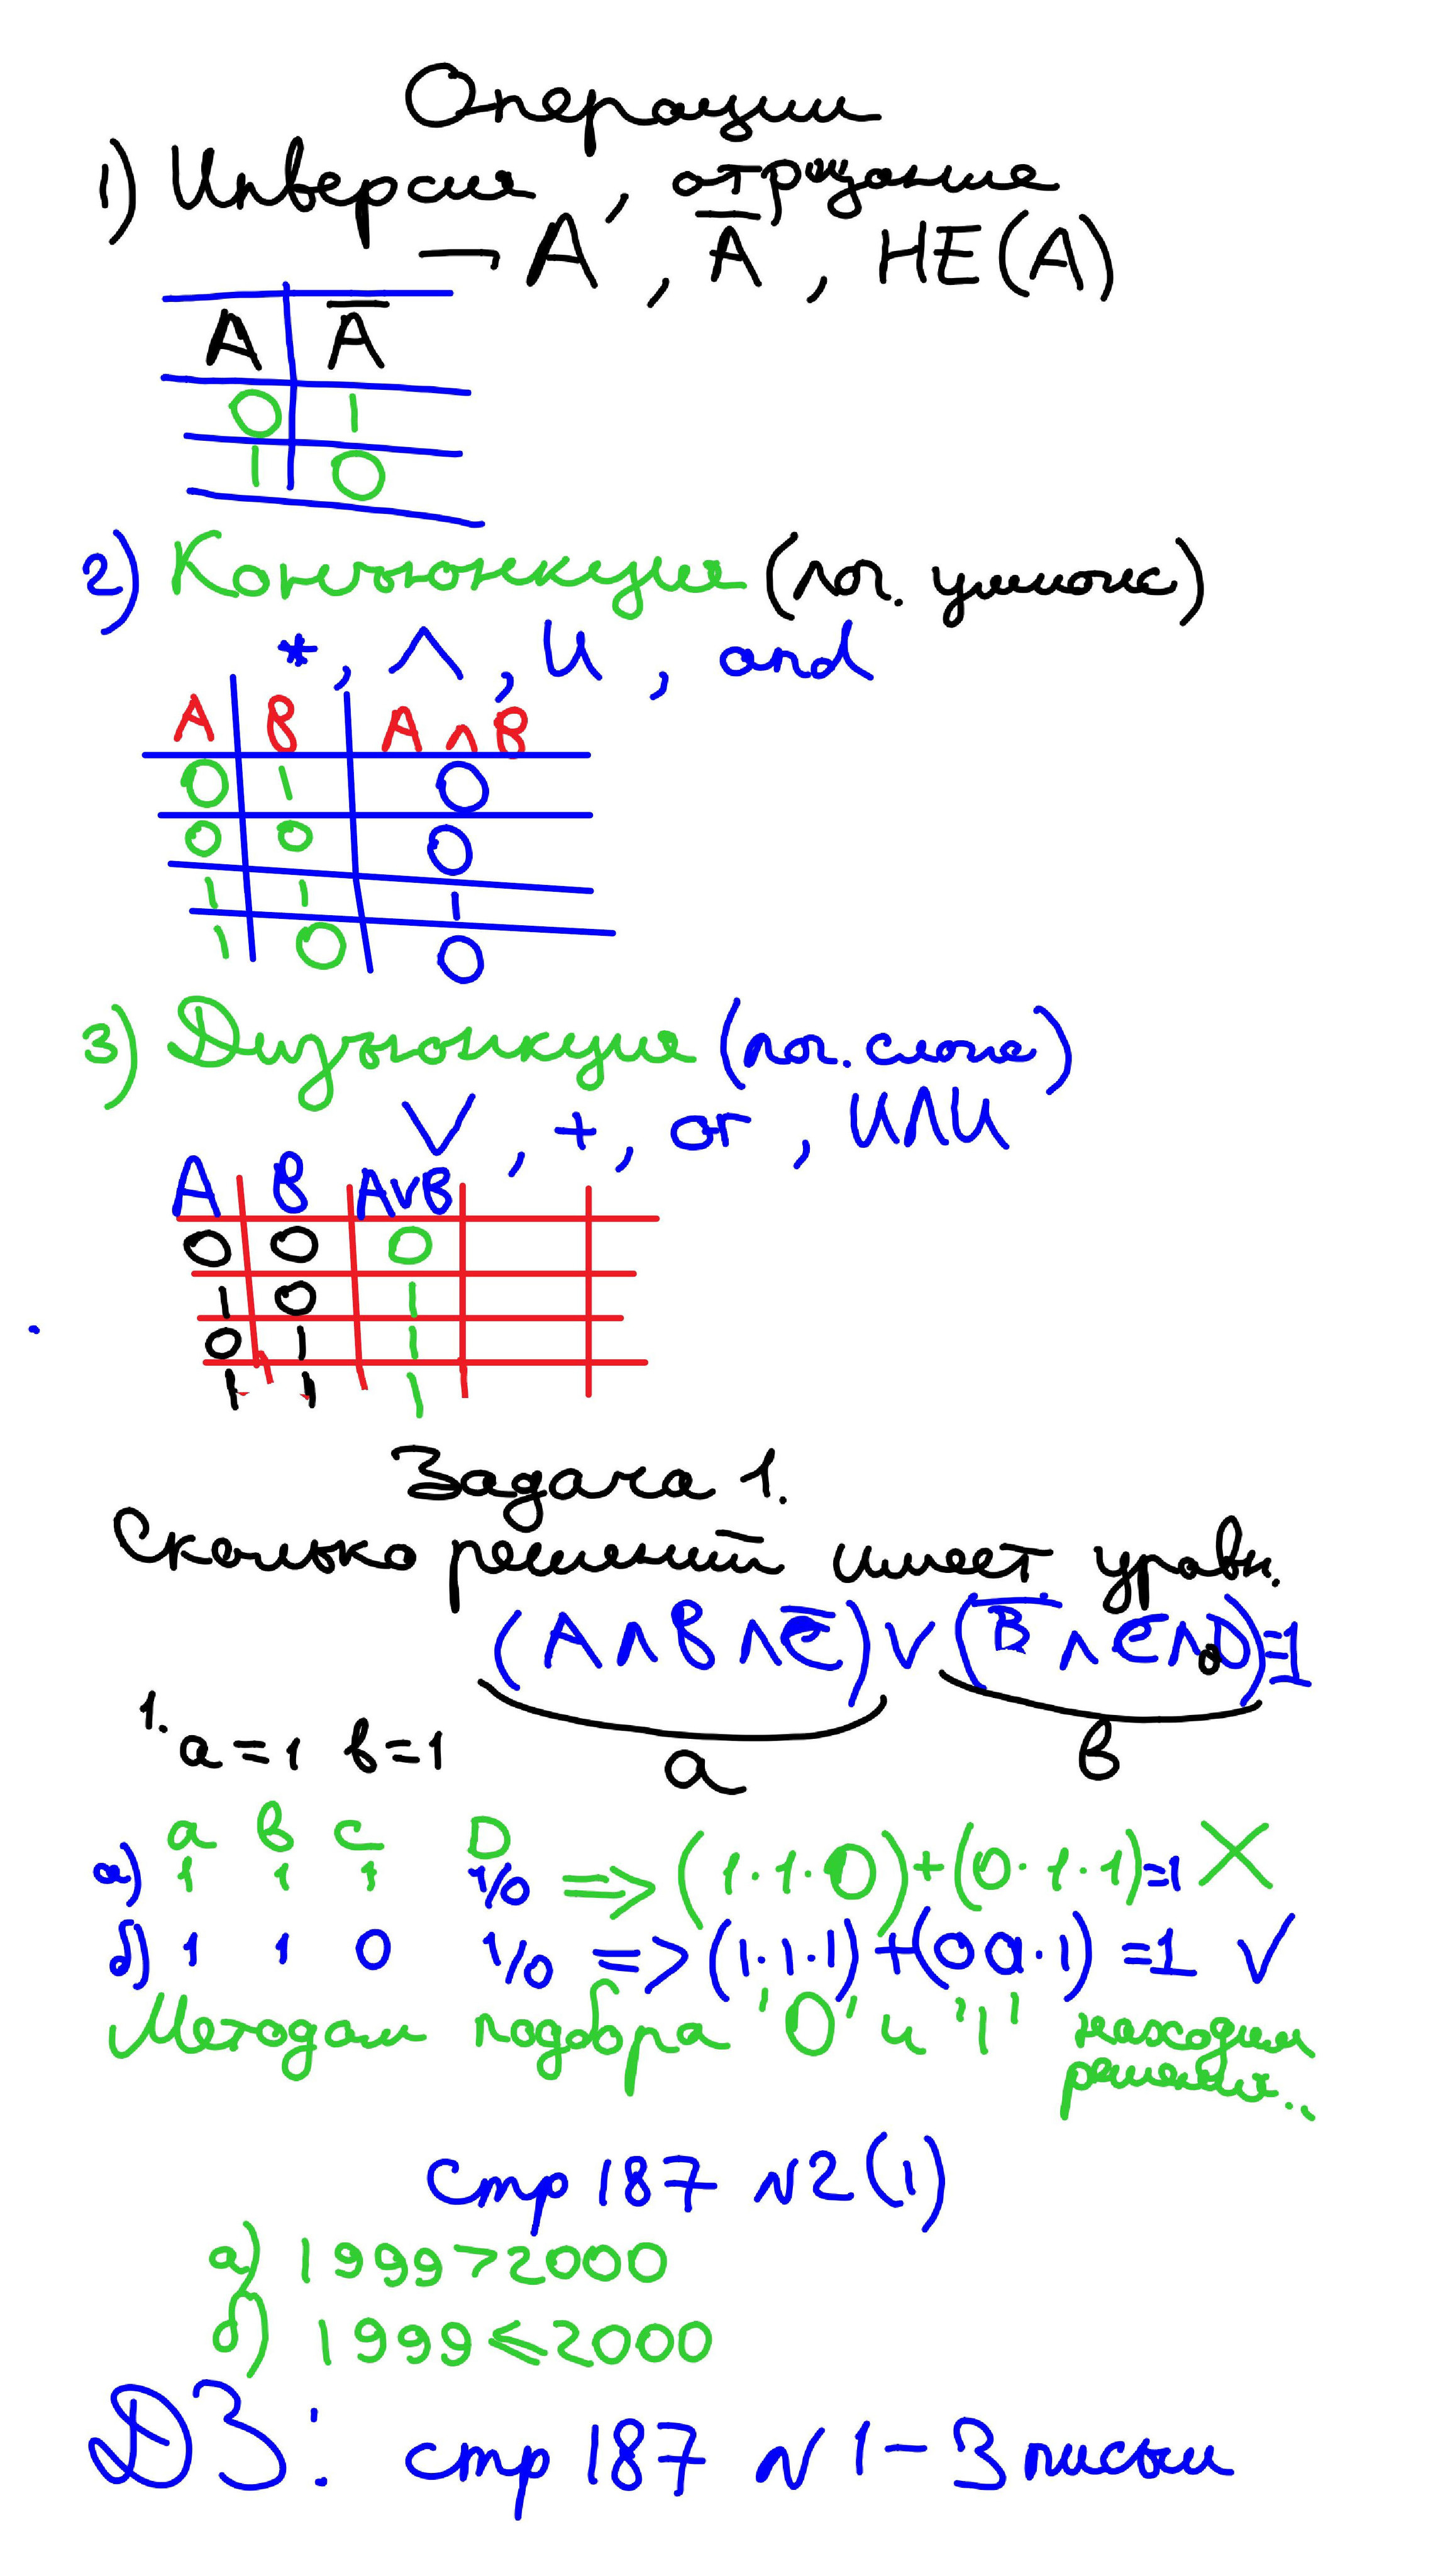 Операции
1) Инверсия, отрицание
¬A, A̅, НЕ(A)
A A̅
0 1
1 0
2) Конъюнкция (лог. умнож)
*, ∧, И, and
A B A∧B
0 1 0
0 0 0
1 1 1
1 0 0
3) Дизъюнкция (лог. слож)
∨, +, or, ИЛИ
A B A∨B
0 0 0
1 0 1
0 1 1
1 1 1
Задача 1.
Сколько решений имеет уравн.
(A∧B∧C̅)∨(B̅∧C∧D)=1
a в
1. a=1 в=1
a в c D
а) 1 1 1 1/0 => (1·1·0)+(0·1·1)=1 X
б) 1 1 0 1/0 => (1·1·1)+(0·0·1)=1 V
Методом подбора '0' и '1' находим
решения..
стр 187 N2(1)
а) 1999>2000
б) 1999≤2000
ДЗ: стр 187 N1-3 письм